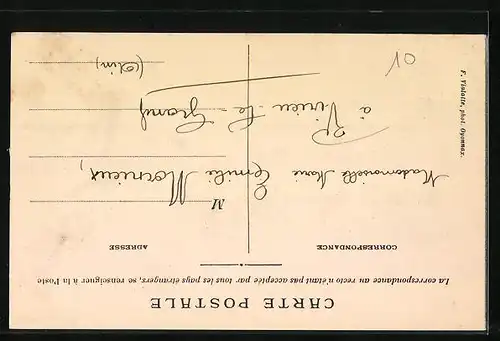 CARTE POSTALE
La correspondance au recto n'étant pas acceptée par tous les pays étrangers, se renseigner à la Poste
CORRESPONDANCE
ADRESSE
M
Mademoiselle Marie Emilie
à Virieu-le-Grand
(Ain)
F. Vialatte, phot. Oyonnax.